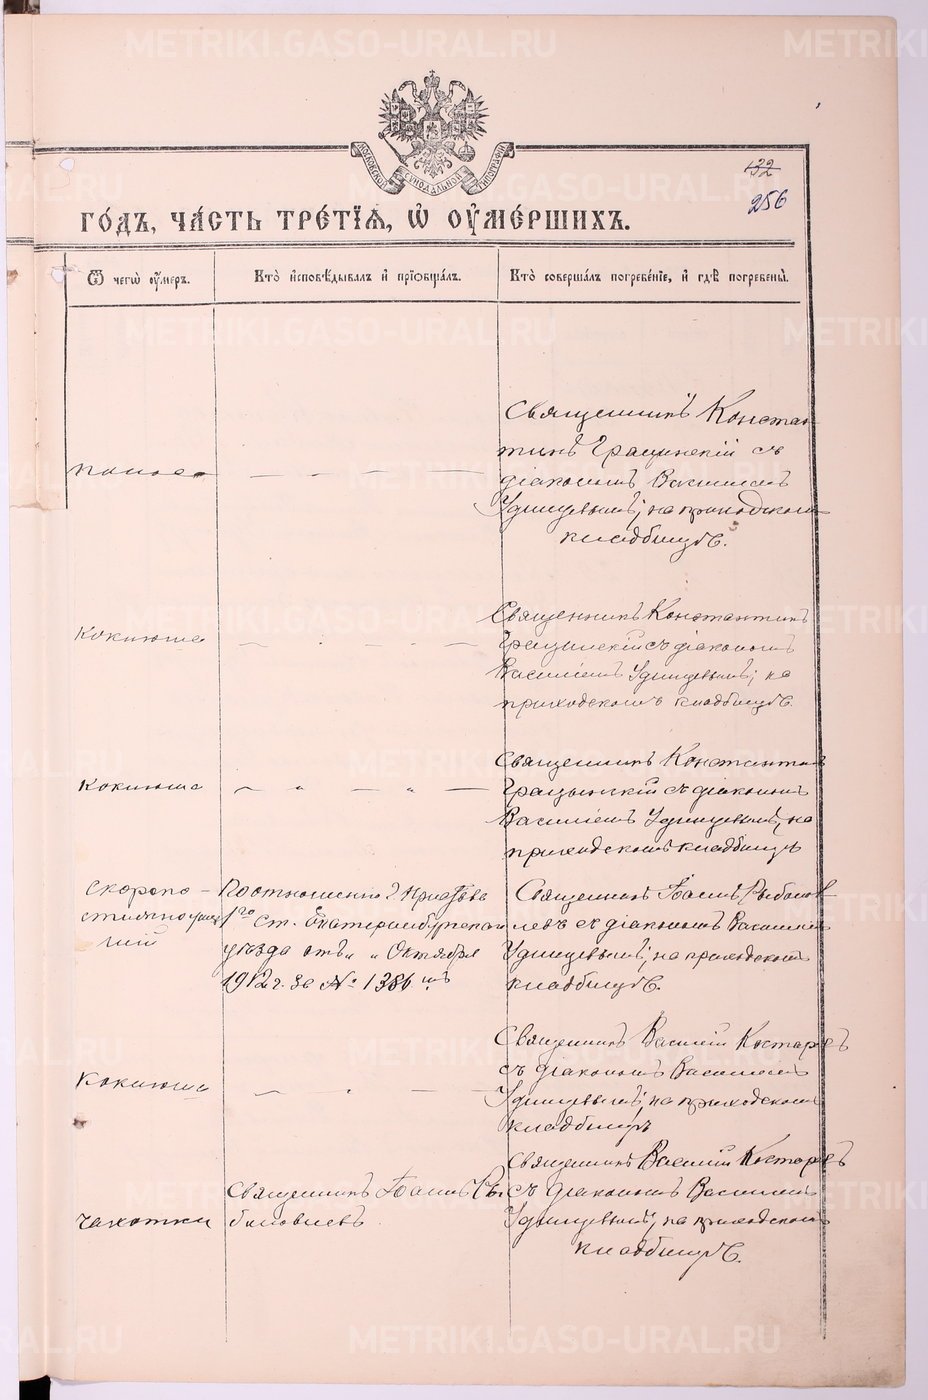 METRIKI.GASO-URAL.RU
МОСКОВСКОЙ СѴНОДАЛЬНОЙ ТИПОГРАФІИ
132
256
ГО́ДЪ, ЧА́СТЬ ТРЕ́ТІѦ, Ѡ҆ ОУ҆МЕ́РШИХЪ.
Ѿ чегѡ̀ оу҆́меръ.
Кто̀ и҆сповѣ́дывалъ и҆ прїѡбща́лъ.
Кто̀ соверша́лъ погребе́нїе, и҆ гдѣ̀ погребены̀.
поноса
Священникъ Констан
тинъ Грацинскій съ
діакономъ Василіемъ
Удинцевымъ; на приходскомъ
кладбищѣ.
коклюша
Священникъ Константинъ
Грацинскій съ діакономъ
Василіемъ Удинцевымъ; на
приходскомъ кладбищѣ.
коклюша
Священникъ Константинъ
Грацинскій съ діакономъ
Василіемъ Удинцевымъ, на
приходскомъ кладбищѣ
скоропо-
стижно
По отношенію Пристава
1го ст. Екатеринбургскаго
уѣзда отъ " " Октября
1912 г. за № 1386
Священникъ Іоаннъ
съ діакономъ Василіемъ
Удинцевымъ; на приходскомъ
кладбищѣ.
коклюша
Священникъ Василій Костаревъ
съ діакономъ Василіемъ
Удинцевымъ, на приходскомъ
кладбищѣ
чахотки
Священникъ Іоаннъ
Священникъ Василій Костаревъ
съ діакономъ Василіемъ
Удинцевымъ; на приходскомъ
кладбищѣ.